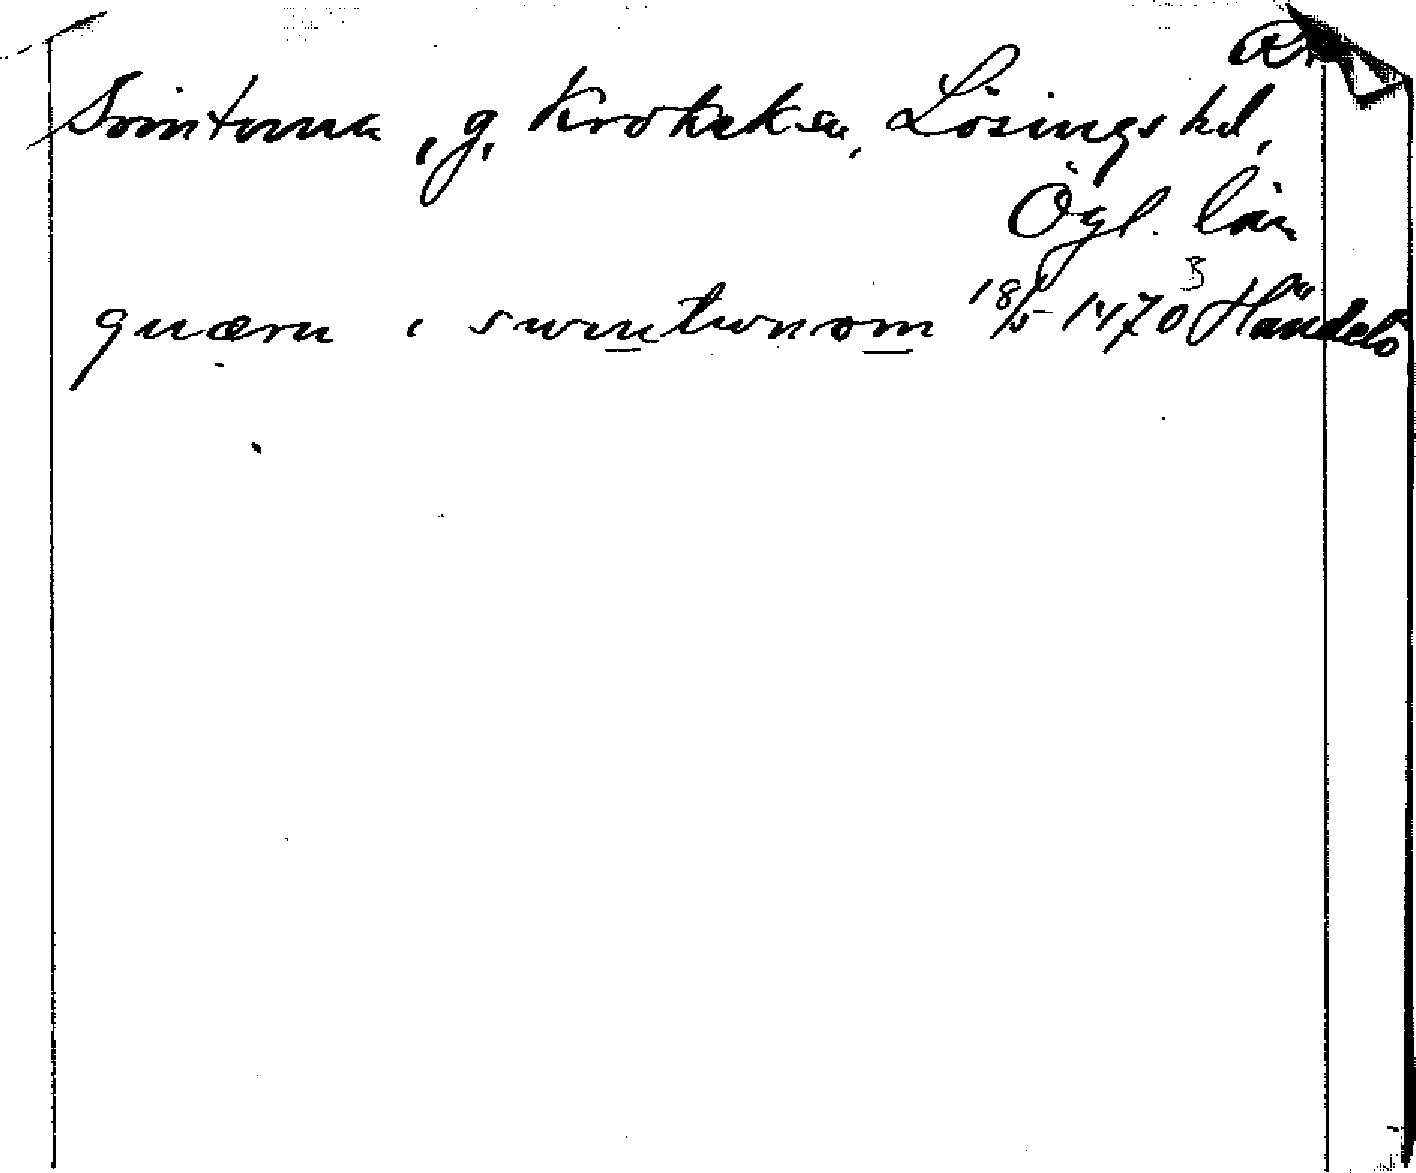 Svintuna, g, Krokeks sn, Lösings hd,
Ögl. län
quærn i swintwnom 18/5 1470 Händelö
B